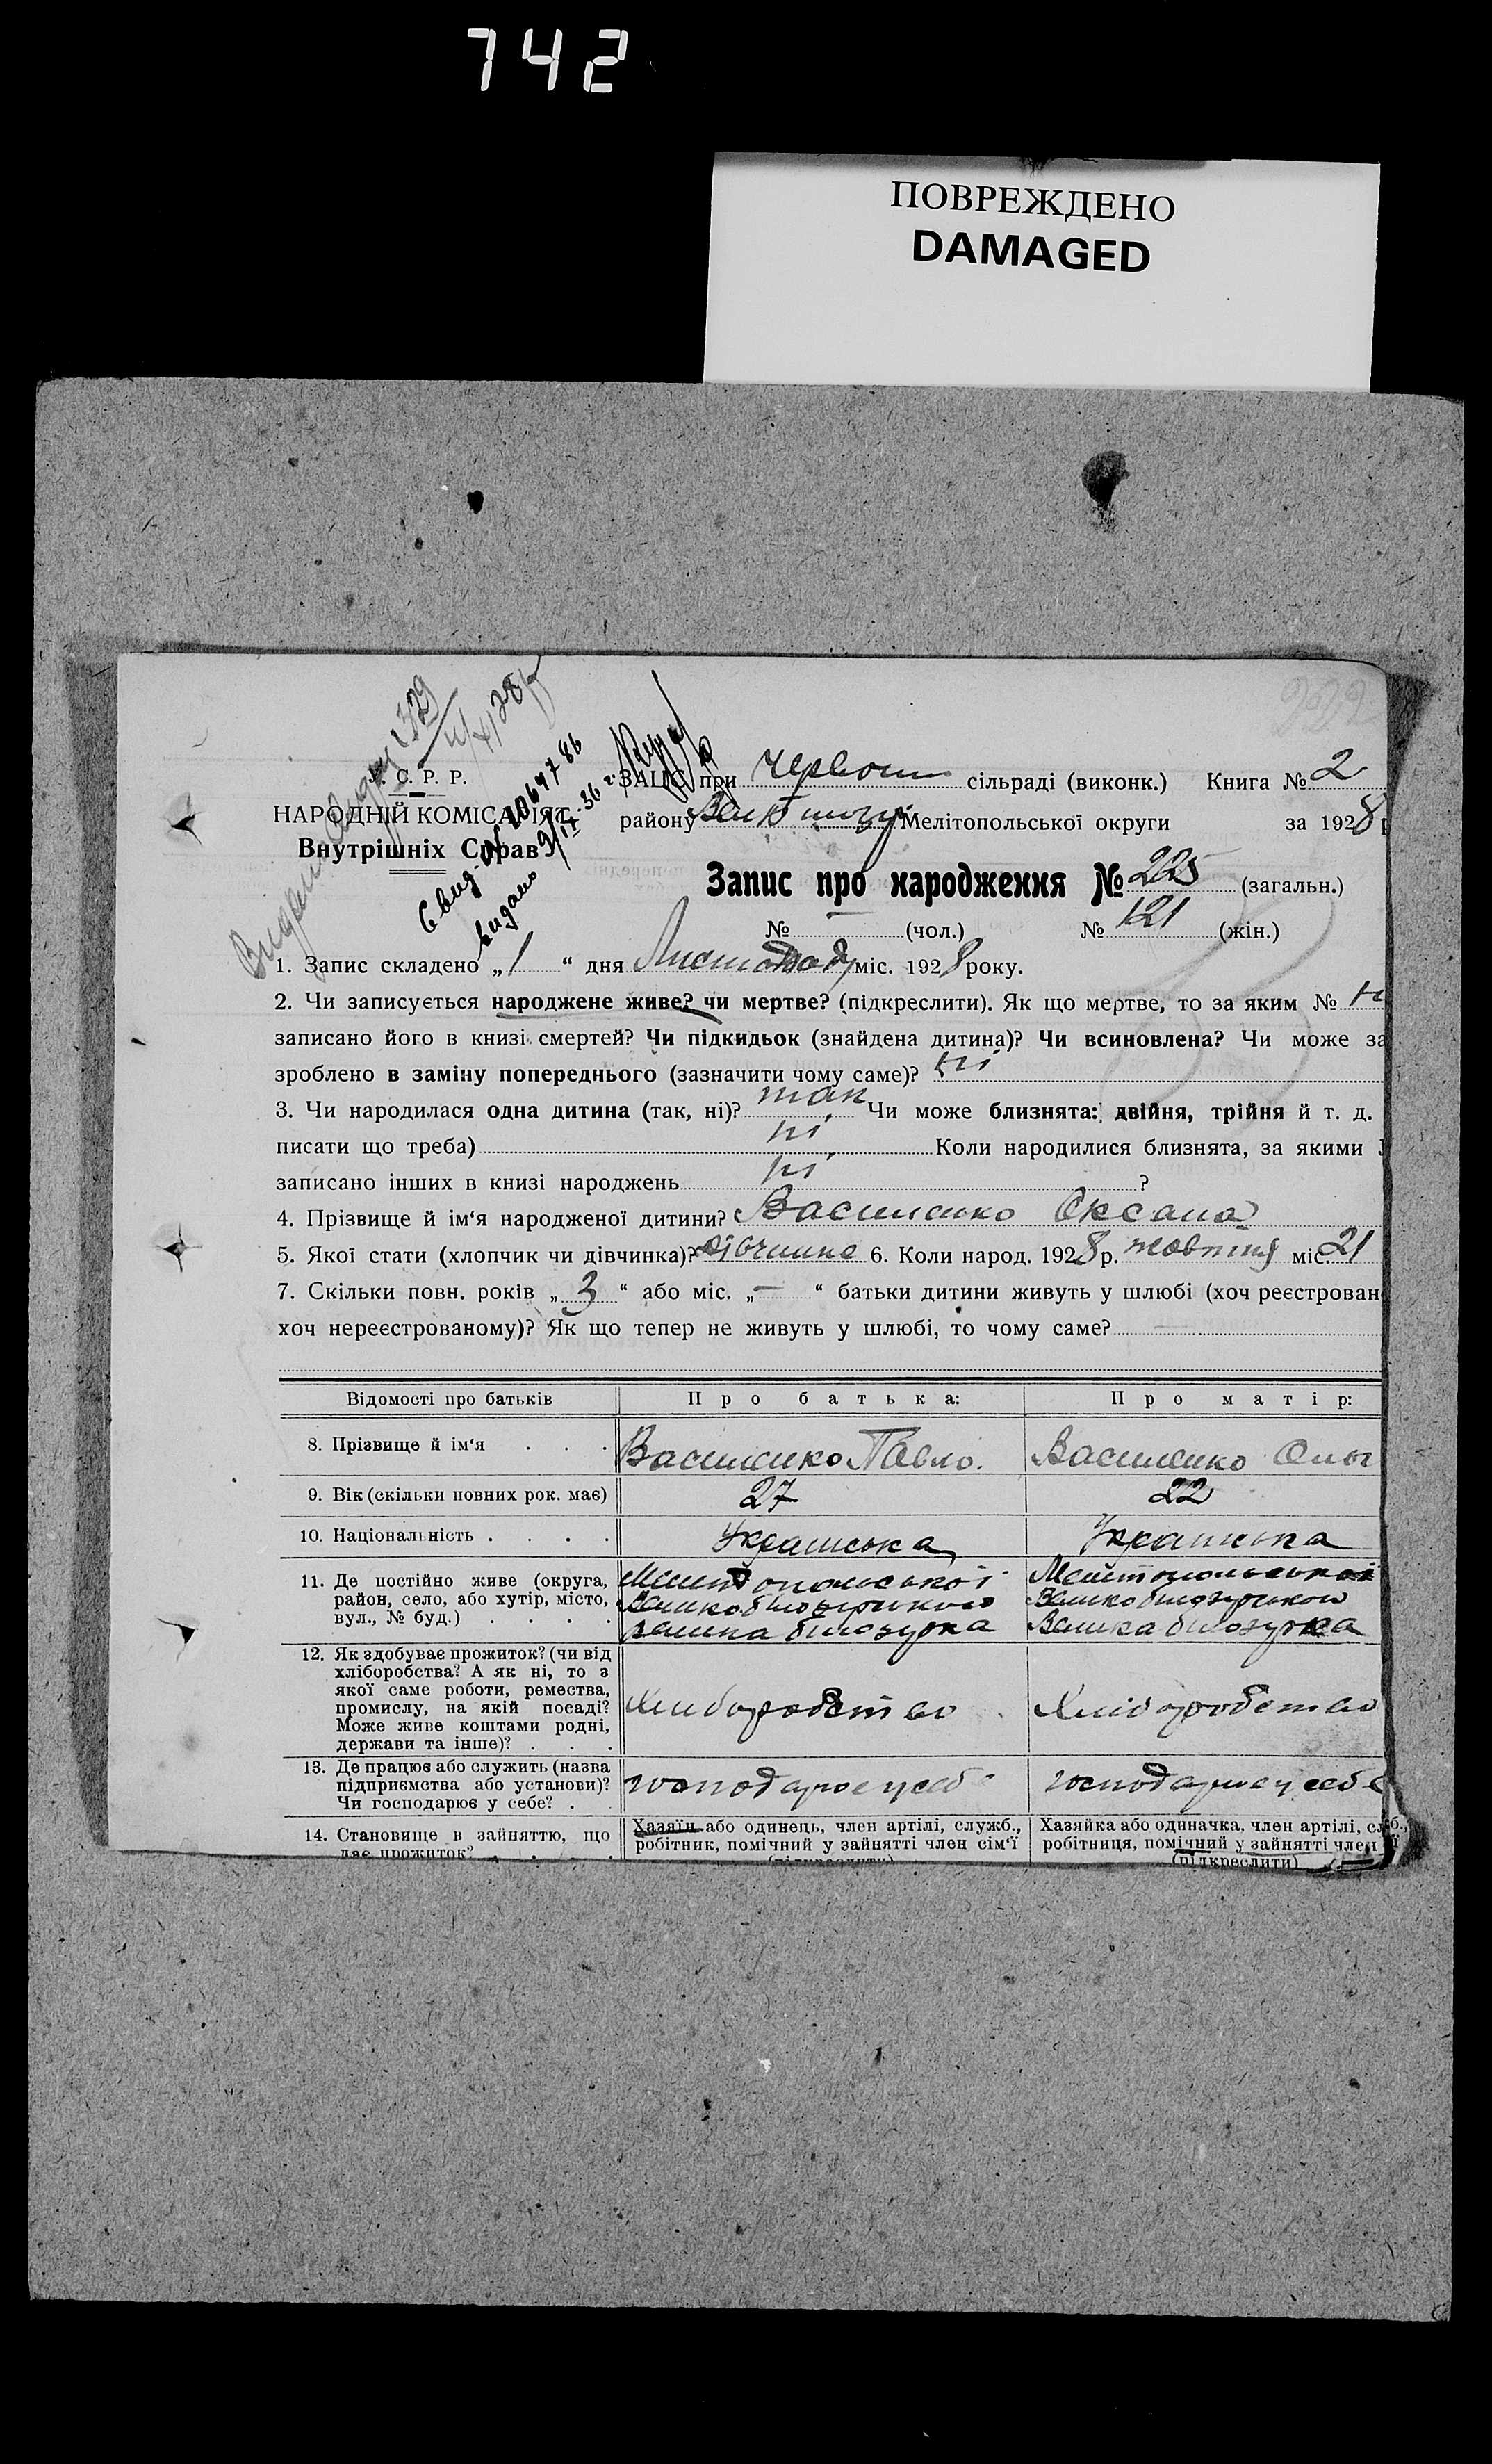 742
ПОВРЕЖДЕНО
DAMAGED
222
329
С. Р. Р.
НАРОДНІЙ КОМІСАРІЯТ
Внутрішніх Справ
Свид. № 106 47 86
видано 9/IX-36 г.
ЗАЦС при Червон сільраді (виконк.) Книга № 2
району Мелітопольської округи за 1928 р
Запис про народження № 225 (загальн.)
№ — (чол.) № 121 (жін.)
1. Запис складено „1“ дня Листопаду міс. 1928 року.
2. Чи записується народжене живе? чи мертве? (підкреслити). Як що мертве, то за яким №
записано його в книзі смертей? Чи підкидьок (знайдена дитина)? Чи всиновлена? Чи може за
зроблено в заміну попереднього (зазначити чому саме)? ні
3. Чи народилася одна дитина (так, ні)? так Чи може близнята: двійня, трійня й т. д.
писати що треба) ні Коли народилися близнята, за якими
записано інших в книзі народжень ні ?
4. Прізвище й ім‘я народженої дитини? Василенко Оксана
5. Якої стати (хлопчик чи дівчинка)? дівчинка 6. Коли народ. 1928 р. жовтня міс. 21
7. Скільки повн. років „3“ або міс. „—“ батьки дитини живуть у шлюбі (хоч реєстрован
хоч нереєстрованому)? Як що тепер не живуть у шлюбі, то чому саме? —
Відомості про батьків Про батька: Про матір:
8. Прізвище й ім‘я . . . Василенко Павло. Василенко Ольг
9. Вік (скільки повних рок. має) 27 22
10. Національність . . . . Українська Українська
11. Де постійно живе (округа, Мелітопольської Мелітопольської
район, село, або хутір, місто, Великобілозірського Великобілозірського
вул., № буд.) . . . . Велика білозурка Велика білозурка
12. Як здобуває прожиток? (чи від
хліборобства? А як ні, то з
якої саме роботи, ремества,
промислу, на якій посаді? Хліборобство Хліборобство
Може живе коштами родні,
держави та інше)? . . .
13. Де працює або служить (назва
підприємства або установи)? господарює у себе господарює у себе
Чи господарює у себе? .
14. Становище в зайняттю, що Хазяїн або одинець, член артілі, служб., Хазяйка або одиначка, член артілі, служб.,
дає прожиток? . . . робітник, помічний у зайнятті член сім‘ї робітниця, помічний у зайнятті член
(підкреслити) (підкреслити)